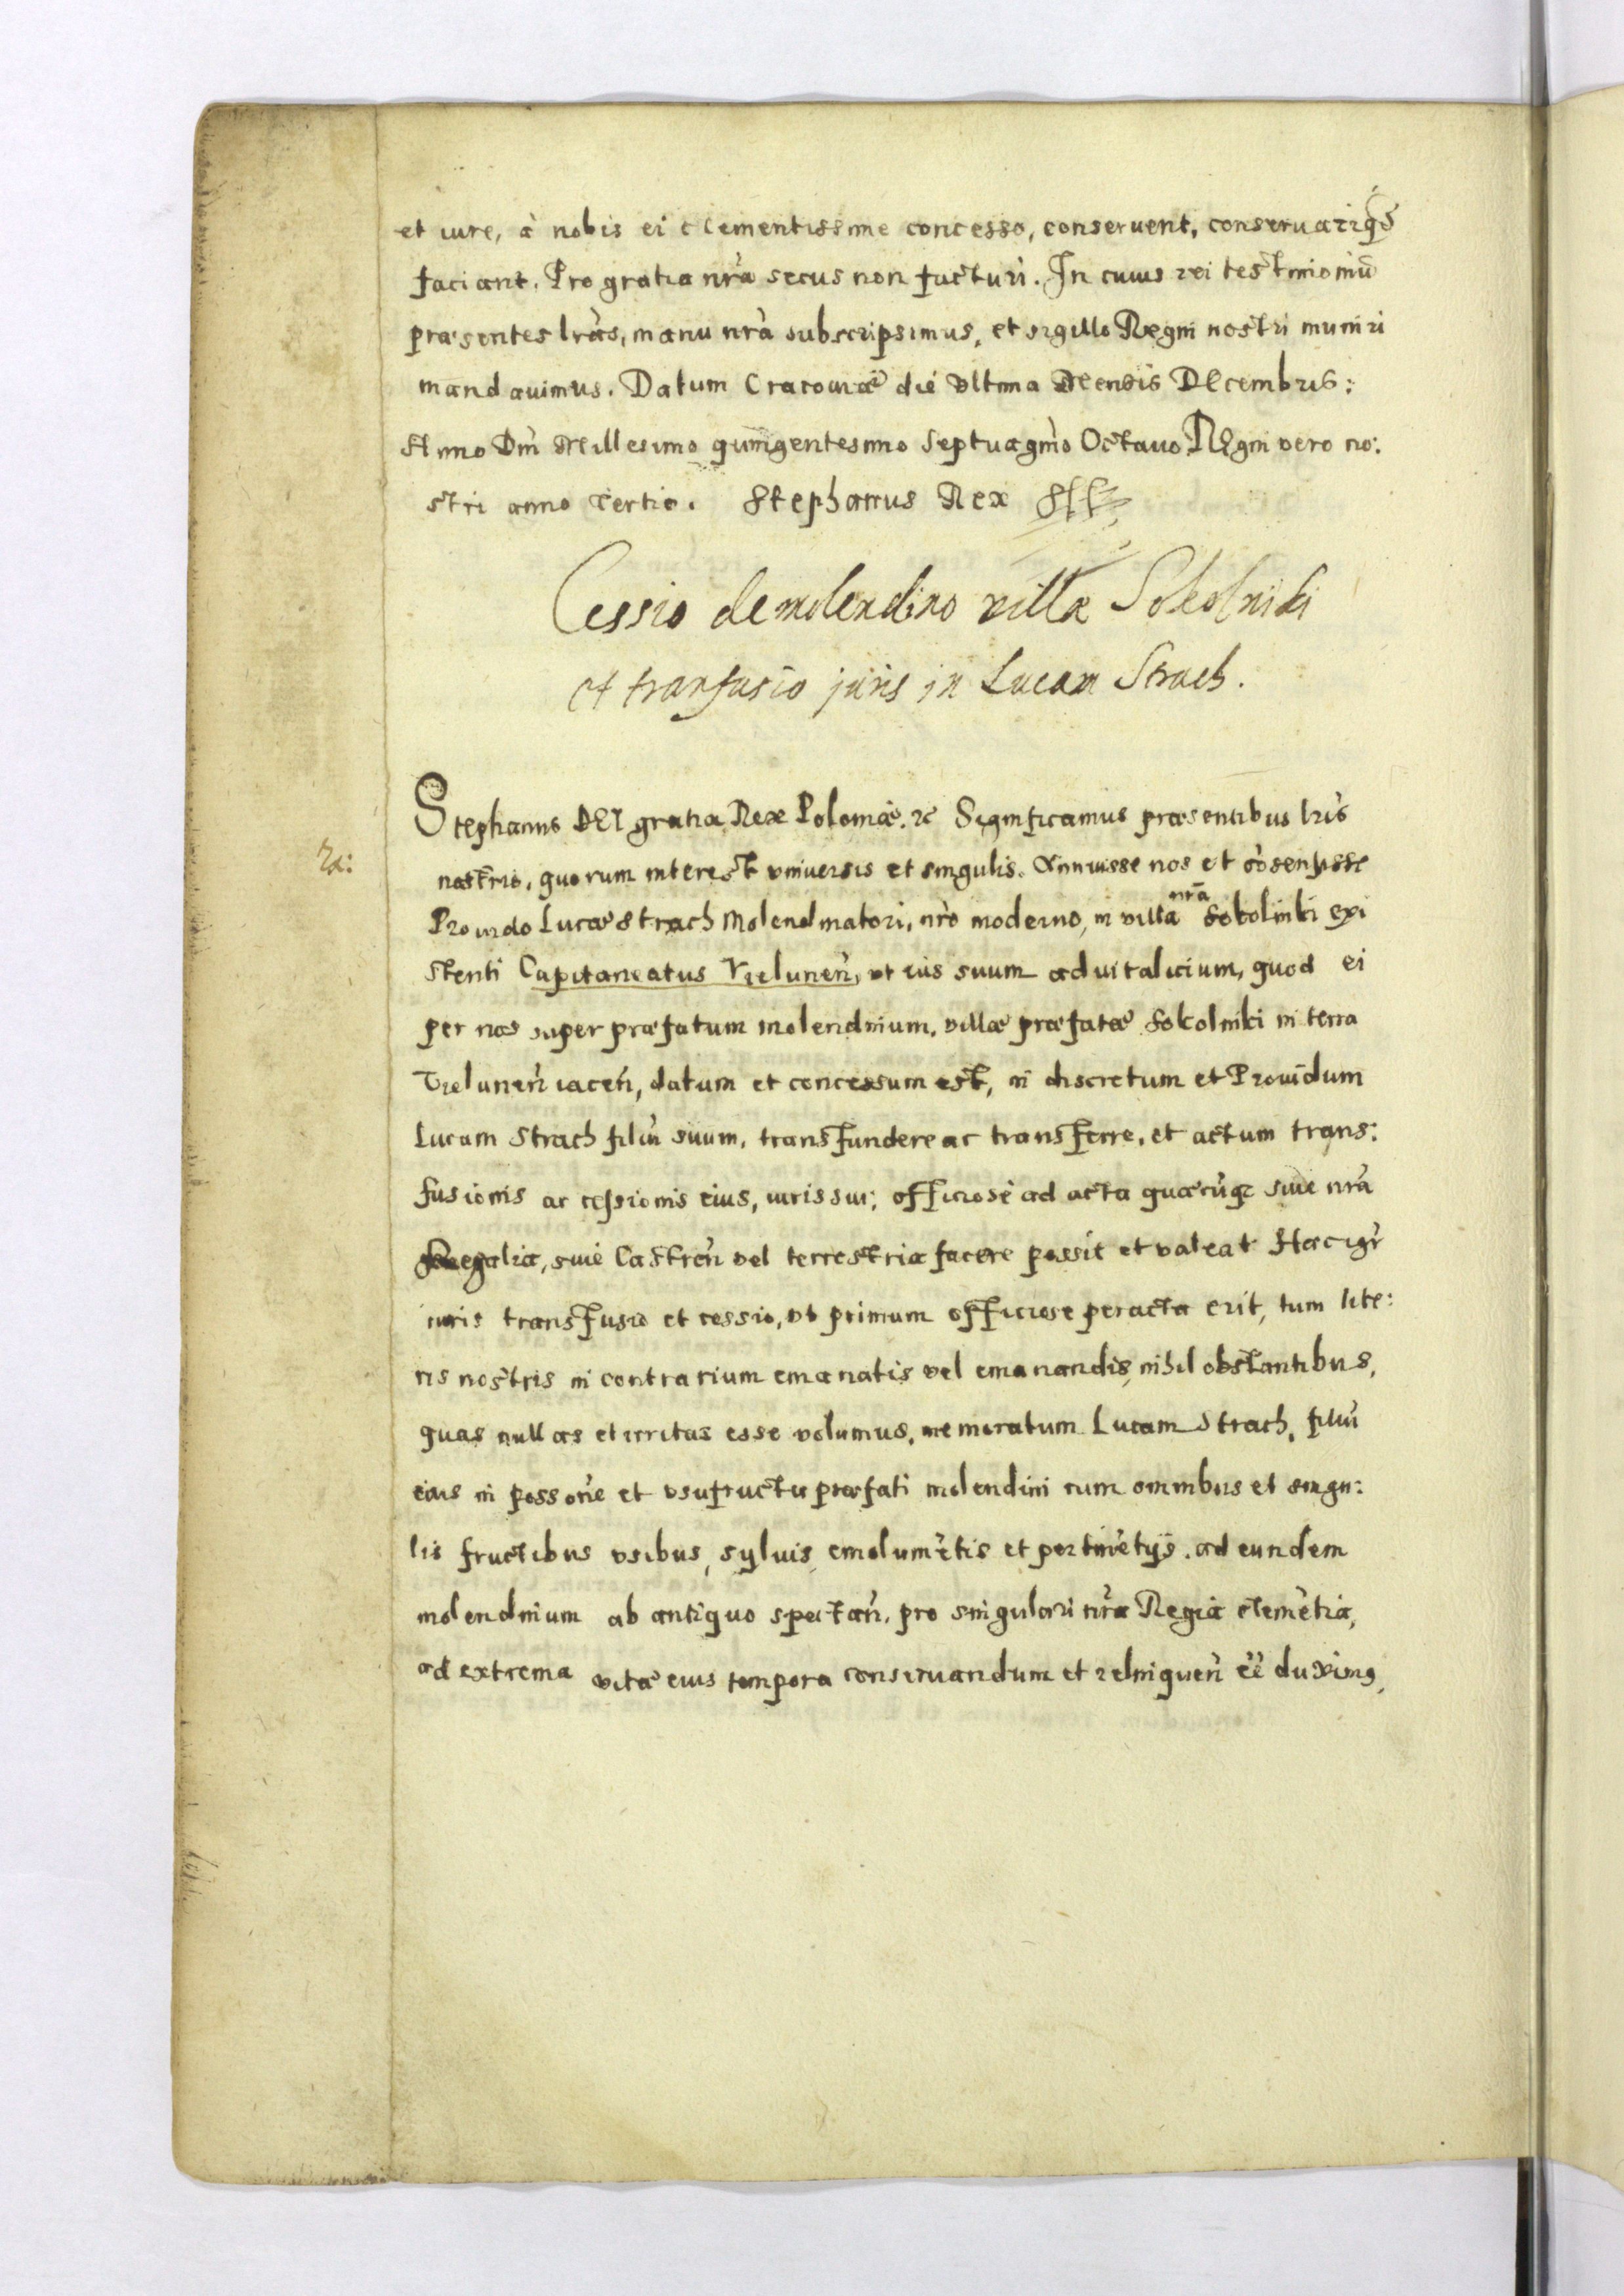 et iure, à nobis ei clementissime concesso, conseruent, conseruariq́ꝫ
faciant. Pro gratia nr̃a secus non facturi. In cuius rei testimoniũ
præsentes lr̃as, manu nr̃à subscripsimus, et sigillo Regni nostri muniri
mandauimus. Datum Cracouiæ die vltima Mensis Decembris:
Anno Dñi Millesimo quingentesimo Septuagm̃o Octauo REgni vero no:
stri anno tertio. Stephanus Rex
Cessio de molendino villæ Sokolniki
et tranfusio juris in Lucam Strach.
Stephanus DEI gratia Rex Poloniæ. ꝛc Significamus præsentibus lr̃is
nostris, quorum interest vniuersis et singulis. Annuisse nos et cõsensisse
nr̃a
Prouido Lucæ Strach Molendinatori, nr̃o moderno, in villa Sokolniki exi
stenti Capitaneatus Vieluneñ, vt ius suum aduitalicium, quod ei
per nos super præfatum molendinum, villæ præfatæ Sokolniki in terra
Vieluneñ iaceñ, datum et concessum est, in discretum et Prouidum
Lucam Strach filiũ suum, transfundere ac transferre, et actum trans:
fusionis ac cessionis eius, iuris sui; officiosè ad acta quæcũqꝫ siue nr̃a
Regalia, siue Castreñ vel terrestria facere possit et valeat Hæc igr̃
iuris transfusio et cessio, vt primum officiose peracta erit, tum lite:
ris nostris in contrarium emanatis vel emanandis, nihil obstantibus,
quas nullas et irritas esse volumus, memoratum Lucam Strach, filiũ
eius in possoñe et vsufructu præfati molendini cum omnibus et singu:
lis fructibus vsibus, syluis, emolumẽtis et pertinẽtijs. ad eundem
molendinum ab antiquo spectañ. pro singulari nr̃a Regia clemẽtia,
ad extrema vitæ eius tempora conseruandum et relinqueñ eẽ duximꝰ,